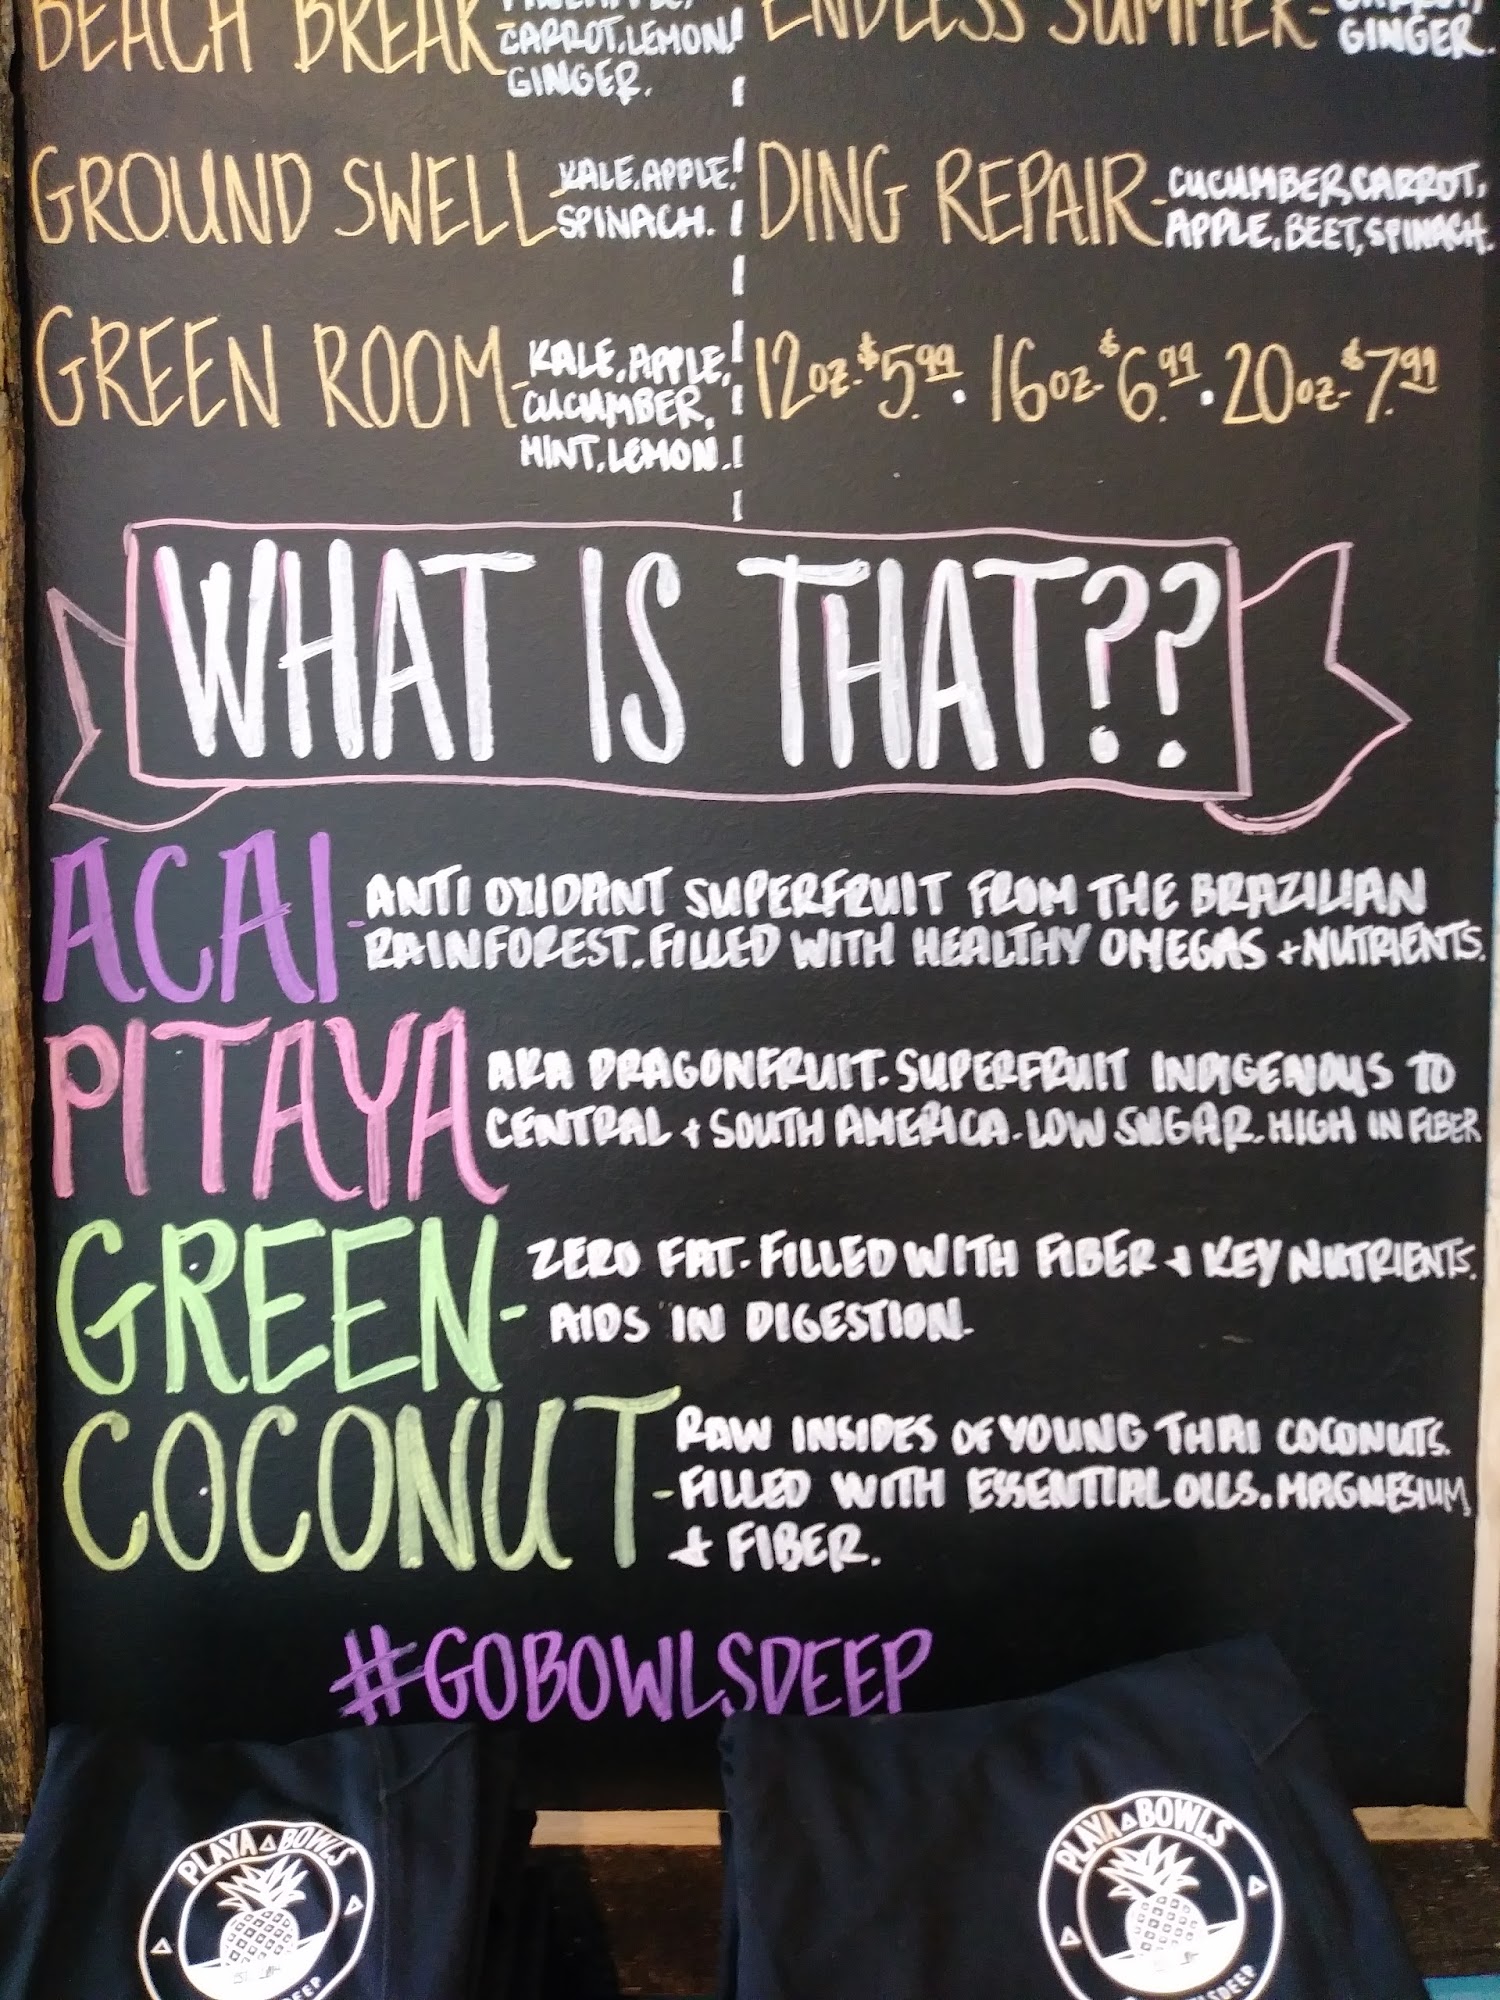 BEACH BREAK-
CARROT, LEMON,
GINGER.
ENDLESS SUMMER-
GINGER.
GROUND SWELL-
KALE, APPLE,
SPINACH.
DING REPAIR-
CUCUMBER, CARROT,
APPLE, BEET, SPINACH.
GREEN ROOM-
KALE, APPLE,
CUCUMBER,
MINT, LEMON.
12oz-$5.99 • 16oz-$6.99 • 20oz-$7.99
WHAT IS THAT??
ACAI-
ANTI OXIDANT SUPERFRUIT FROM THE BRAZILIAN
RAINFOREST. FILLED WITH HEALTHY OMEGAS + NUTRIENTS.
PITAYA
AKA DRAGONFRUIT. SUPERFRUIT INDIGENOUS TO
CENTRAL + SOUTH AMERICA. LOW SUGAR. HIGH IN FIBER
GREEN-
ZERO FAT. FILLED WITH FIBER + KEY NUTRIENTS.
AIDS IN DIGESTION.
COCONUT-
RAW INSIDES OF YOUNG THAI COCONUTS.
FILLED WITH ESSENTIAL OILS, MAGNESIUM,
+ FIBER.
#GOBOWLSDEEP
PLAYA BOWLS
PLAYA BOWLS